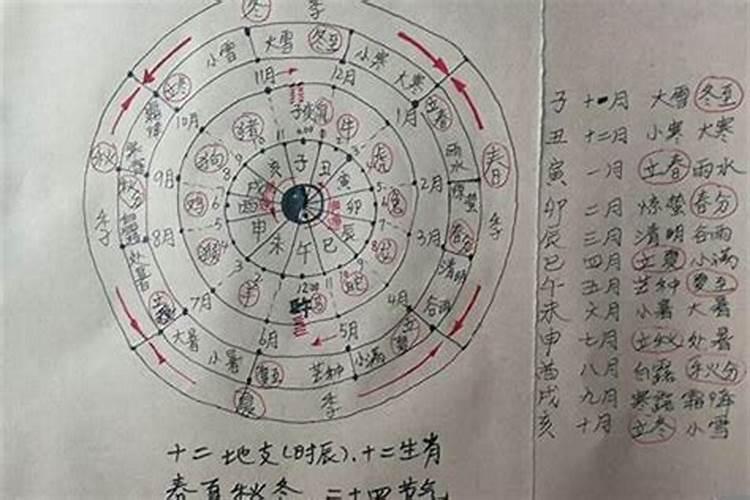 冬 季
小雪 大雪 冬至 小寒 大寒
立冬 立春
11月 12月
10月 1月
子 鼠 牛
猪 虎
秋 狗 春
9月 亥 子 丑 2月 雨水
戌 寅
秋分 鸡 酉 卯 兔 惊蛰
季 申 辰 季
8月 未 午 巳 3月 春分
处暑 猴 清明
羊 12:00 蛇
立秋 7月 午 马 4月 谷雨
大暑 6月 5月 立夏
小暑 夏至 芒种 小满
夏 季
子 十一月 大雪 冬至
丑 十二月 小寒 大寒
寅 一月 立春 雨水
卯 二月 惊蛰 春分
辰 三月 清明 谷雨
巳 四月 立夏 小满
午 五月 芒种 夏至
未 六月 小暑 大暑
申 七月 立秋 处暑
酉 八月 白露 秋分
戌 九月 寒露 霜降
亥 十月 立冬 小雪
十二地支(时辰)、十二生肖
春夏秋冬 二十四节气